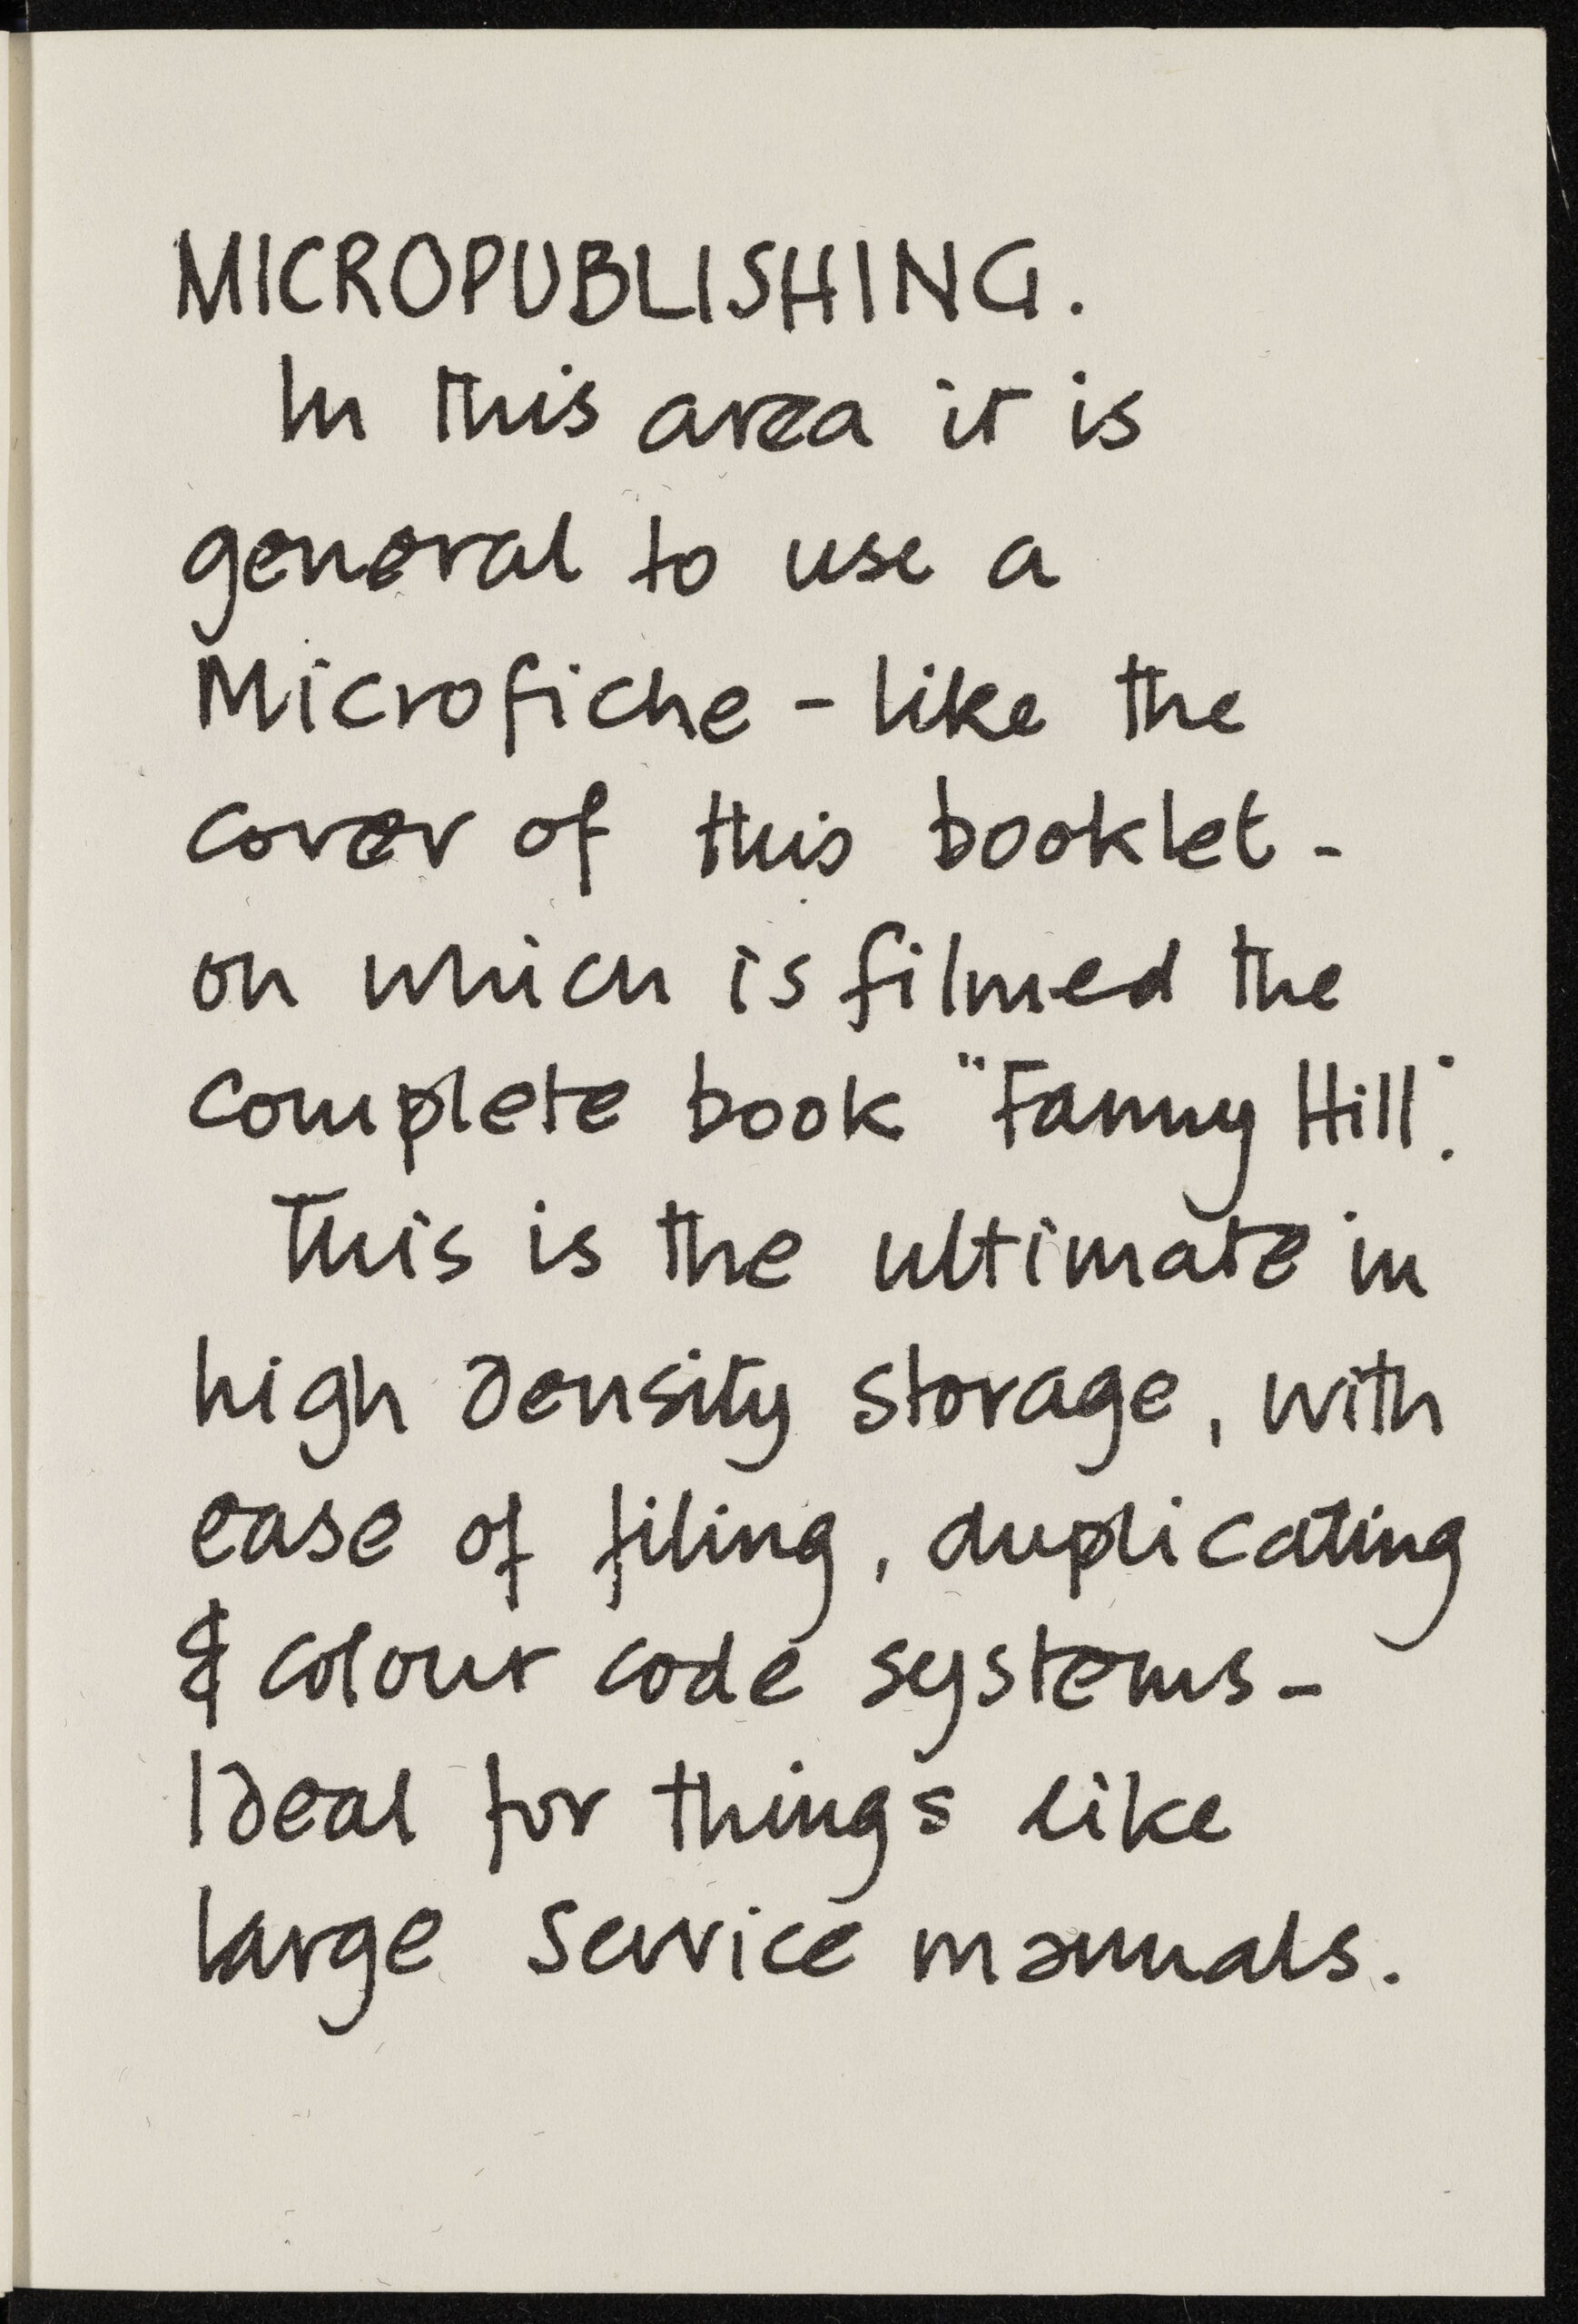 MICROPUBLISHING.
In this area it is
general to use a
Microfiche - like the
cover of this booklet -
on which is filmed the
complete book "Fanny Hill".
This is the ultimate in
high density storage, with
ease of filing, duplicating
& colour code systems -
Ideal for things like
large service manuals.